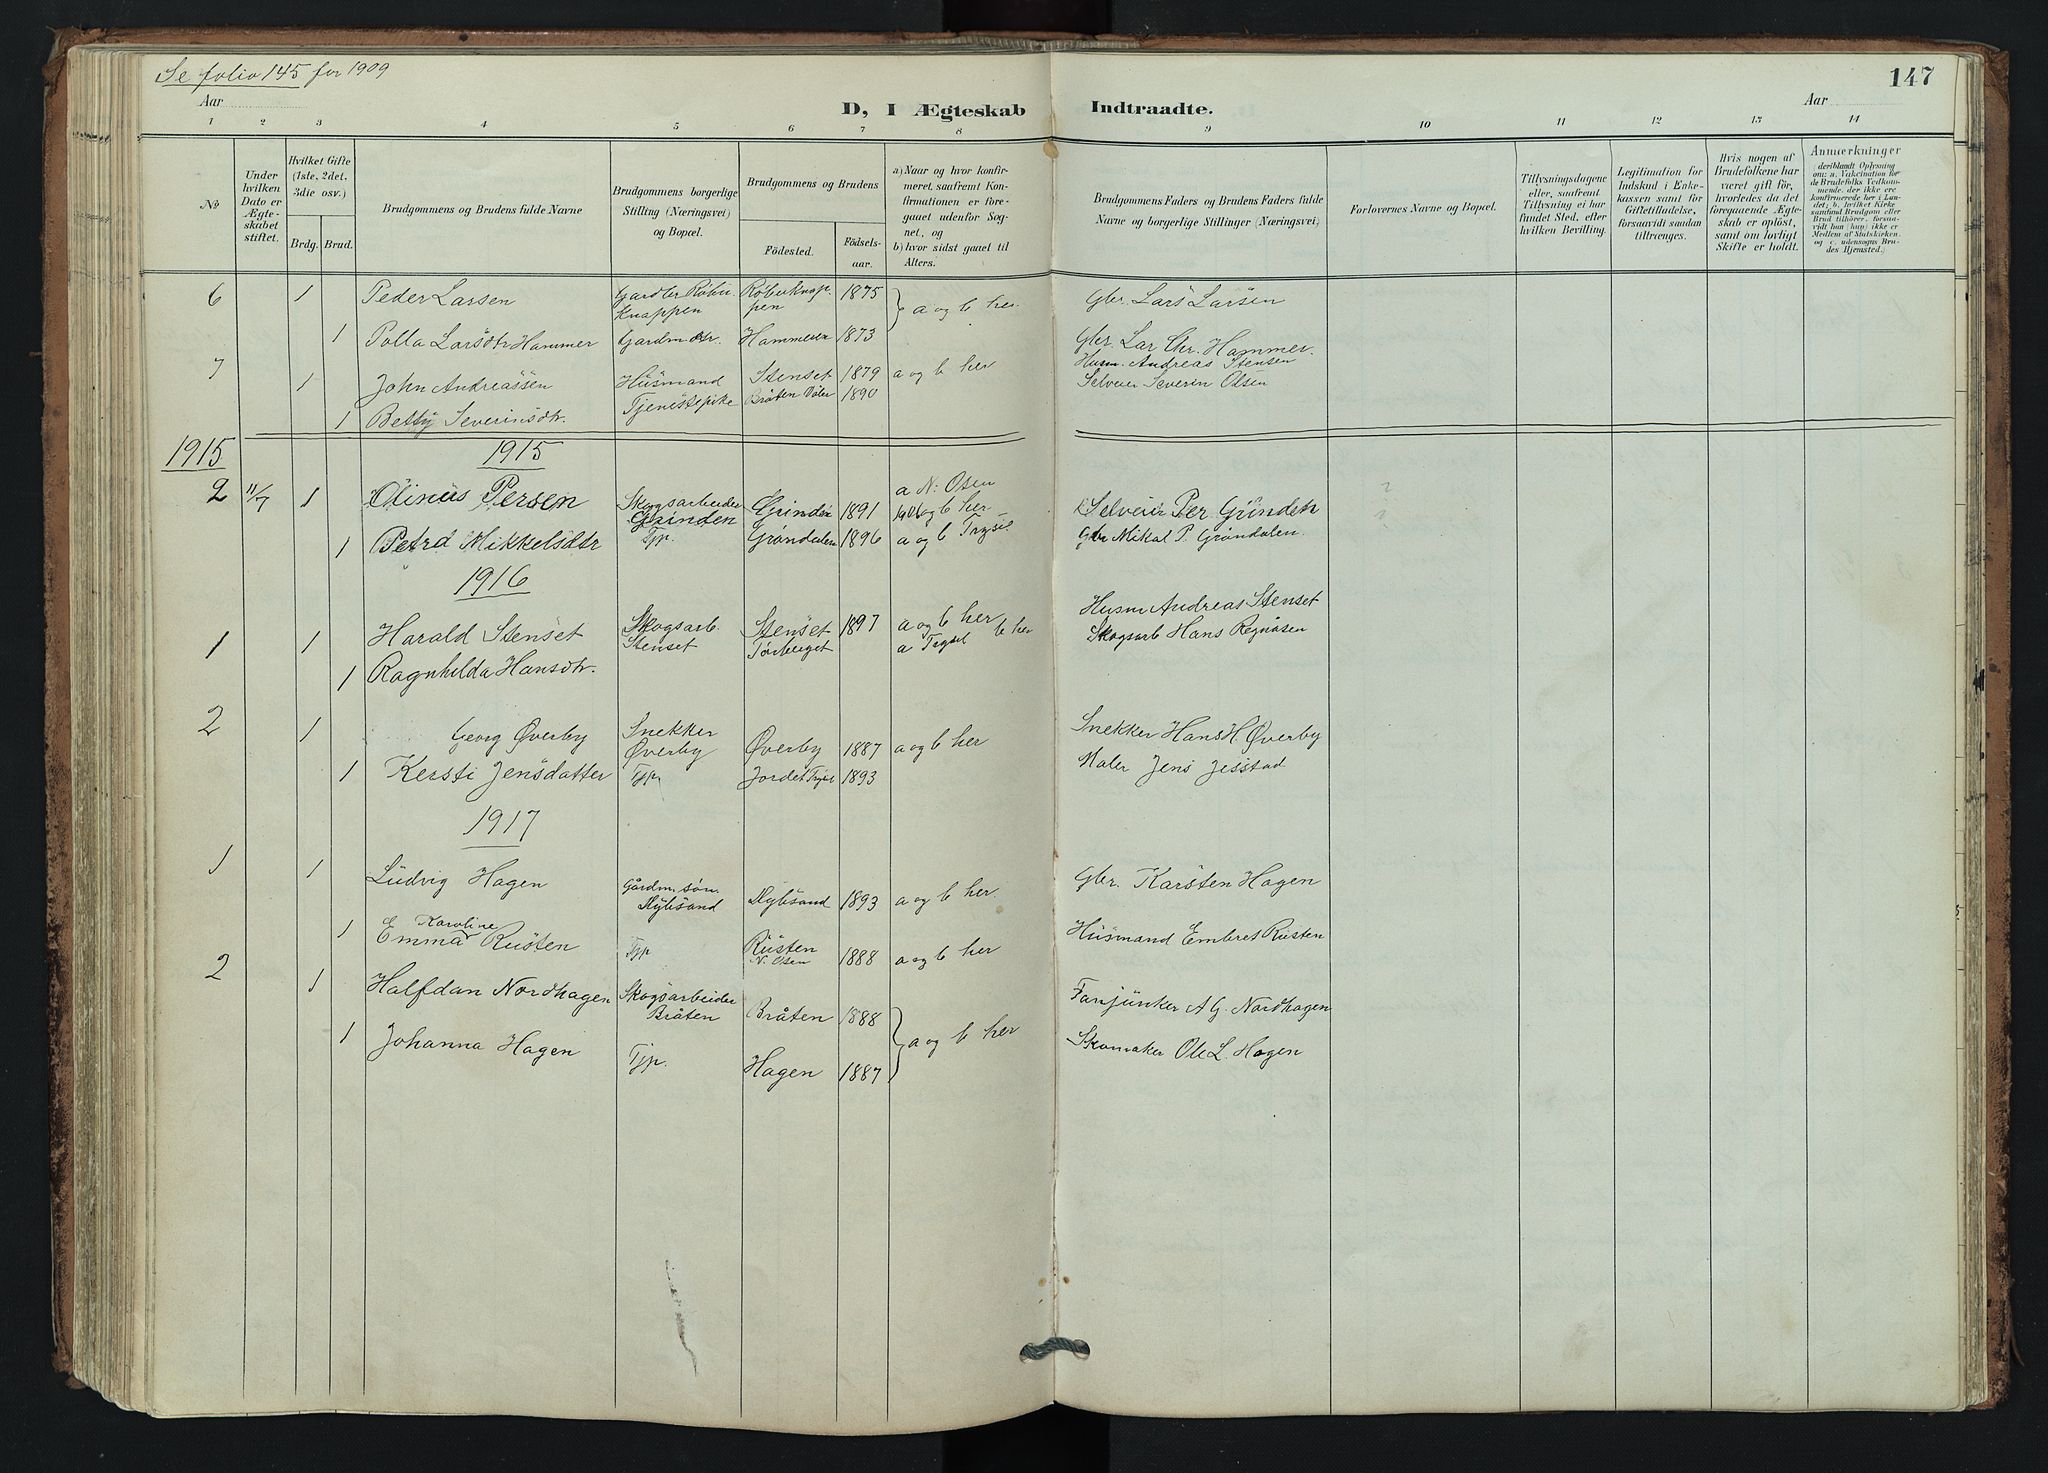 Se folio 145 for 1909
147
Aar
D, I Ægteskab Indtraadte.
Aar
1 2 3 4 5 6 7 8 9 10 11 12 13 14
No
Under hvilken Dato er Ægteskabet stiftet.
Hvilket Gifte (1ste, 2det, 3die osv.)
Brdg. Brud.
Brudgommens og Brudens fulde Navne
Brudgommens borgerlige Stilling (Næringsvei) og Bopæl.
Brudgommens og Brudens
Fødested. Fødselsaar.
a) Naar og hvor konfirmeret, saafremt Konfirmationen er foregaaet udenfor Sognet, og
b) hvor sidst gaaet til Alters.
Brudgommens Faders og Brudens Faders fulde Navne og borgerlige Stillinger (Næringsvei)
Forlovernes Navne og Bopæl.
Tillysningsdagene eller, saafremt Tillysning ei har fundet Sted, efter hvilken Bevilling.
Legitimation for Indskud i Enkekassen samt for Giftetilladelse, forsaavidt saadan tiltrænges.
Hvis nogen af Brudefolkene har været gift før, hvorledes da det foregaaende Ægteskab er opløst, samt om lovligt Skifte er holdt.
Anmerkninger
deriblandt Oplysning om: a. Vakcination for de Brudefolks Vedkommende, der ikke ere konfirmerede her i Landet; b. hvilket Kirkesamfund Brudgom eller Brud tilhører, forsaavidt han (hun) ikke er Medlem af Statskirken, og c. udensogns Brudes Hjemsted.)
6 1 Peder Larsen Gardbr Røbu Knappen Røbuknappen 1875 a og b her. Gbr. Lars Larsen
1 Polla Larsdtr Hammer Gardmdtr. Hammeren 1873 Gbr. Lar Chr. Hammer.
7 1 John Andreassen Husmand Stenset 1879 a og b her Husm. Andreas Stensen
1 Betty Severinsdtr. Tjenestepike Bråten Våler 1890 Selveier Severin Olsen
1915 1915
2 11/7 1 Olinus Persen Skogsarbeider Grinden Grinden 1891 a N. Osen og b her Selveier Per Grinden
1 Petra Mikkelsdtr Tjp. Grøndalen 1896 a og b Trysil Gbr Mikal P. Grøndalen.
1916
1 1 Harald Stenset Skogsarb. Stenset Stenset 1897 a og b her Husm Andreas Stenset
1 Ragnhilda Hansdtr. Tørberget a Trysil b her Skogsarb Hans Regnåsen
2 1 Georg Øverby Snekker Øverby Øverby 1887 a og b her Snekker Hans H Øverby
1 Kersti Jensdatter Tjp. Jordet Trysil 1893 Maler Jens Jesstad
1917
1 1 Ludvig Hagen Gårdm. søn. Nybsand Nybsand 1893 a og b her. Gbr. Karsten Hagen
1 Emma Karoline Rusten Tjp Rusten N. Osen 1888 a og b her Husmand Embret Rusten
2 1 Halfdan Nordhagen Skogsarbeider Bråten Bråten 1888 a og b her Fanjunker A G. Nordhagen
1 Johanna Hagen Tjp. Hagen 1887 Skomaker Ole L. Hagen